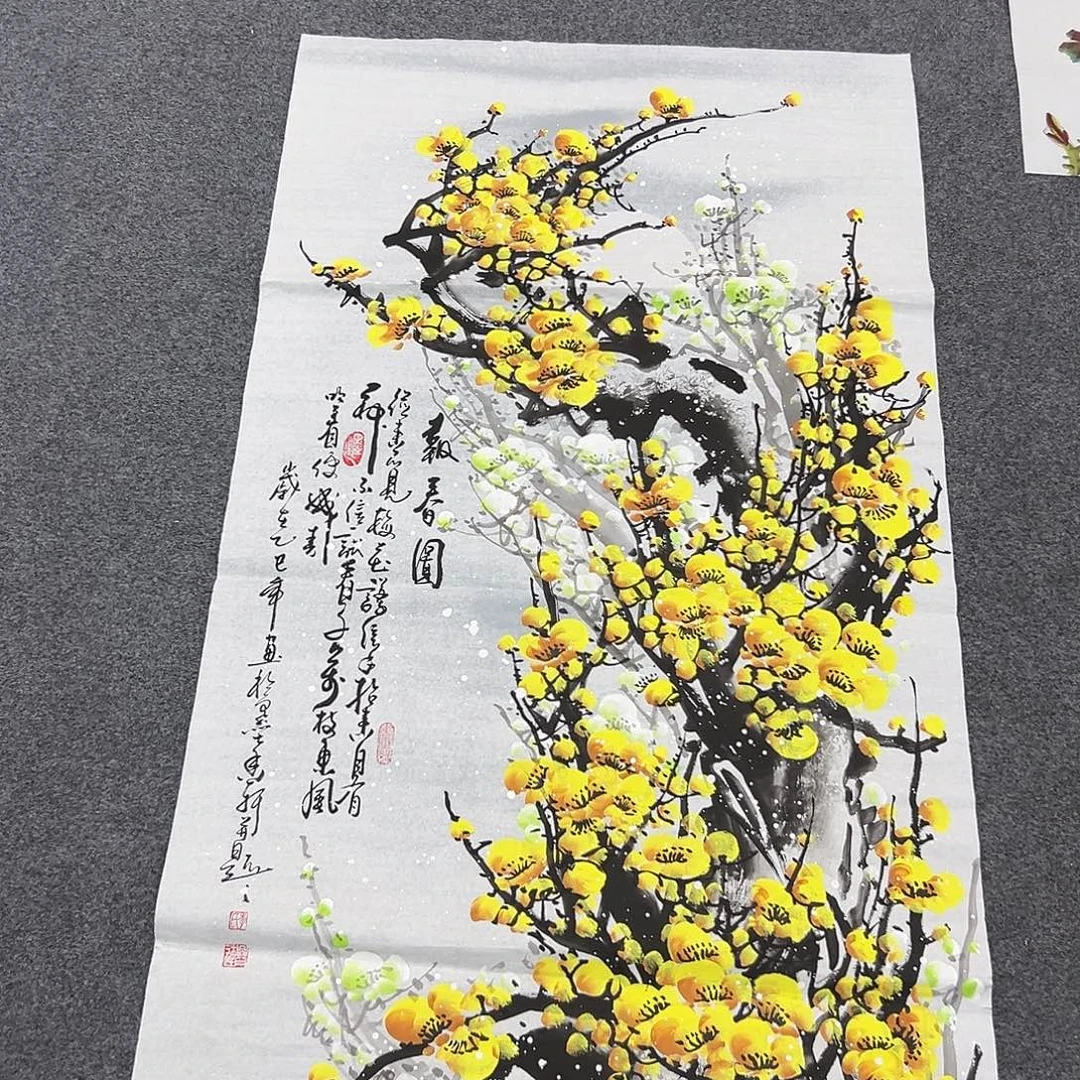 報春圖
從来不見梅花譜信手拈来自有
神不信試看千万枝東風
吹着便成春
歲在乙巳年畫於墨軒并題